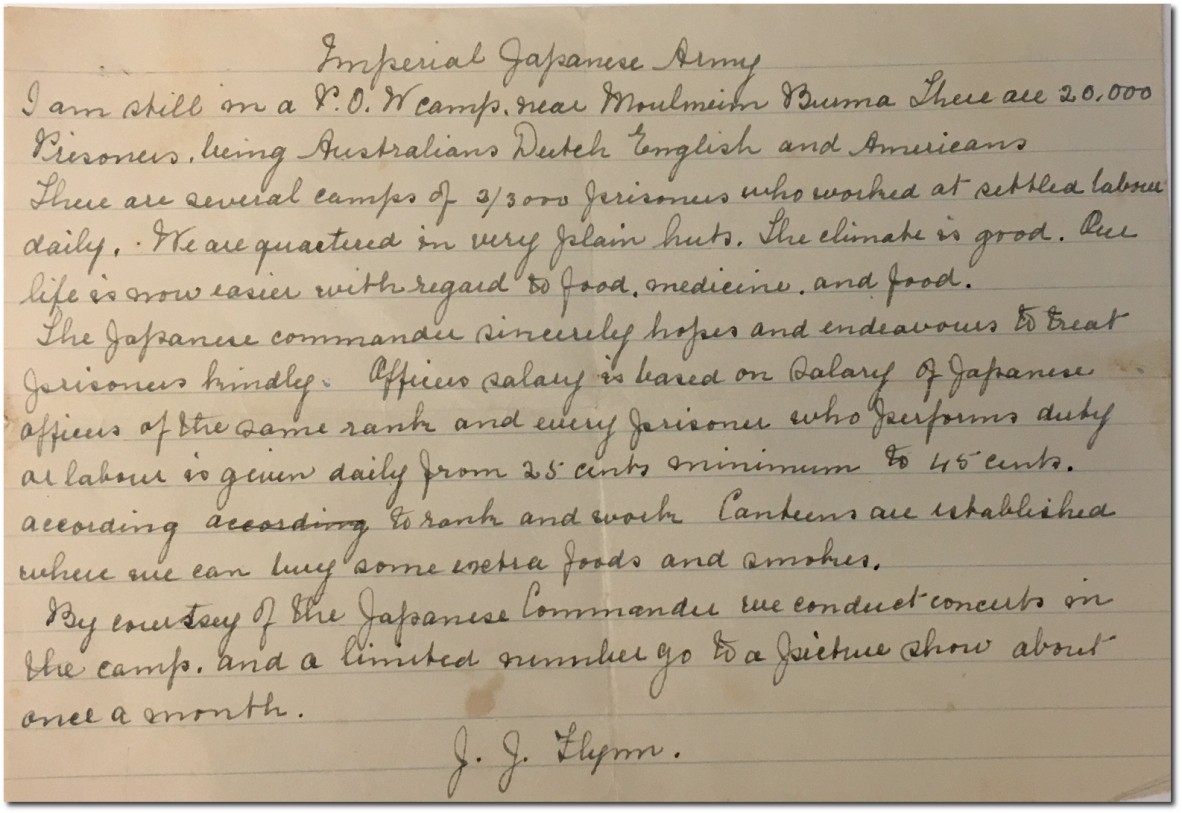 Imperial Japanese Army
I am still in a P.O.W camp. near Moulmein Burma There are 20,000
Prisoners. being Australians Dutch English and Americans
There are several camps of 2/3000 prisoners who worked at settled labour
daily. We are quartered in very plain huts. The climate is good. Our
life is now easier with regard to food. medicine. and food.
The Japanese commander sincerely hopes and endeavours to treat
prisoners kindly. Officers salary is based on salary of Japanese
officers of the same rank and every prisoner who performs duty
or labour is given daily from 25 cents minimum to 45 cents.
according according to rank and work Canteens are established
where we can buy some extra foods and smokes.
By courtsey of the Japanese Commander we conduct concerts in
the camp. and a limited number go to a picture show about
once a month.
J. J. Flynn.